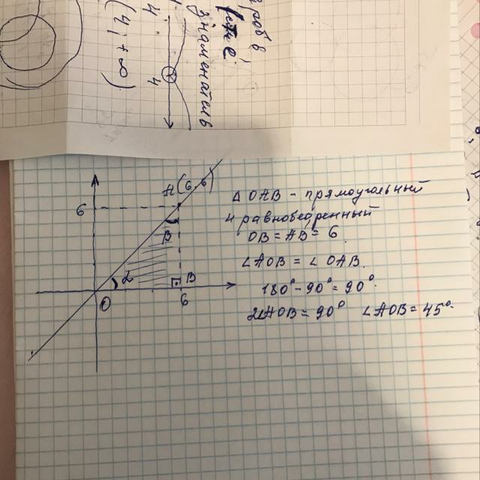 знаменатель
4
(4; +∞)
A(6;6)
6
β
α
B
O
6
Δ OAB - прямоугольный
и равнобедренный
OB = AB = 6.
∠AOB = ∠OAB.
180° - 90° = 90°.
2∠AOB = 90° ∠AOB = 45°.